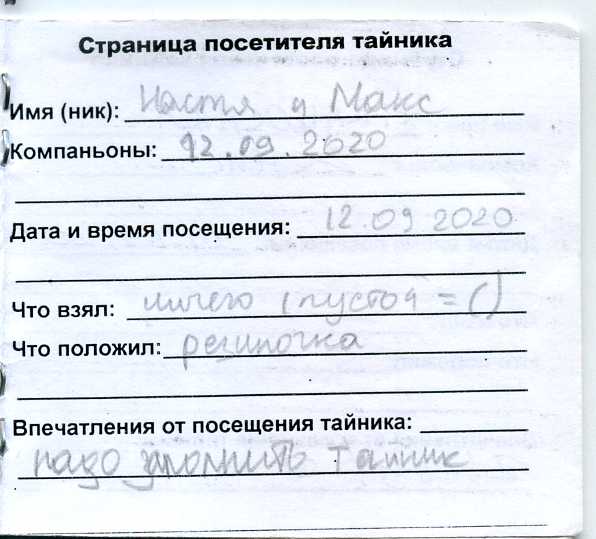 Страница посетителя тайника
Имя (ник): Настя и Макс
Компаньоны: 12.09.2020
Дата и время посещения: 12.09 2020
Что взял: ничего (пустой =()
Что положил: резиночка
Впечатления от посещения тайника:
надо заполнить тайник